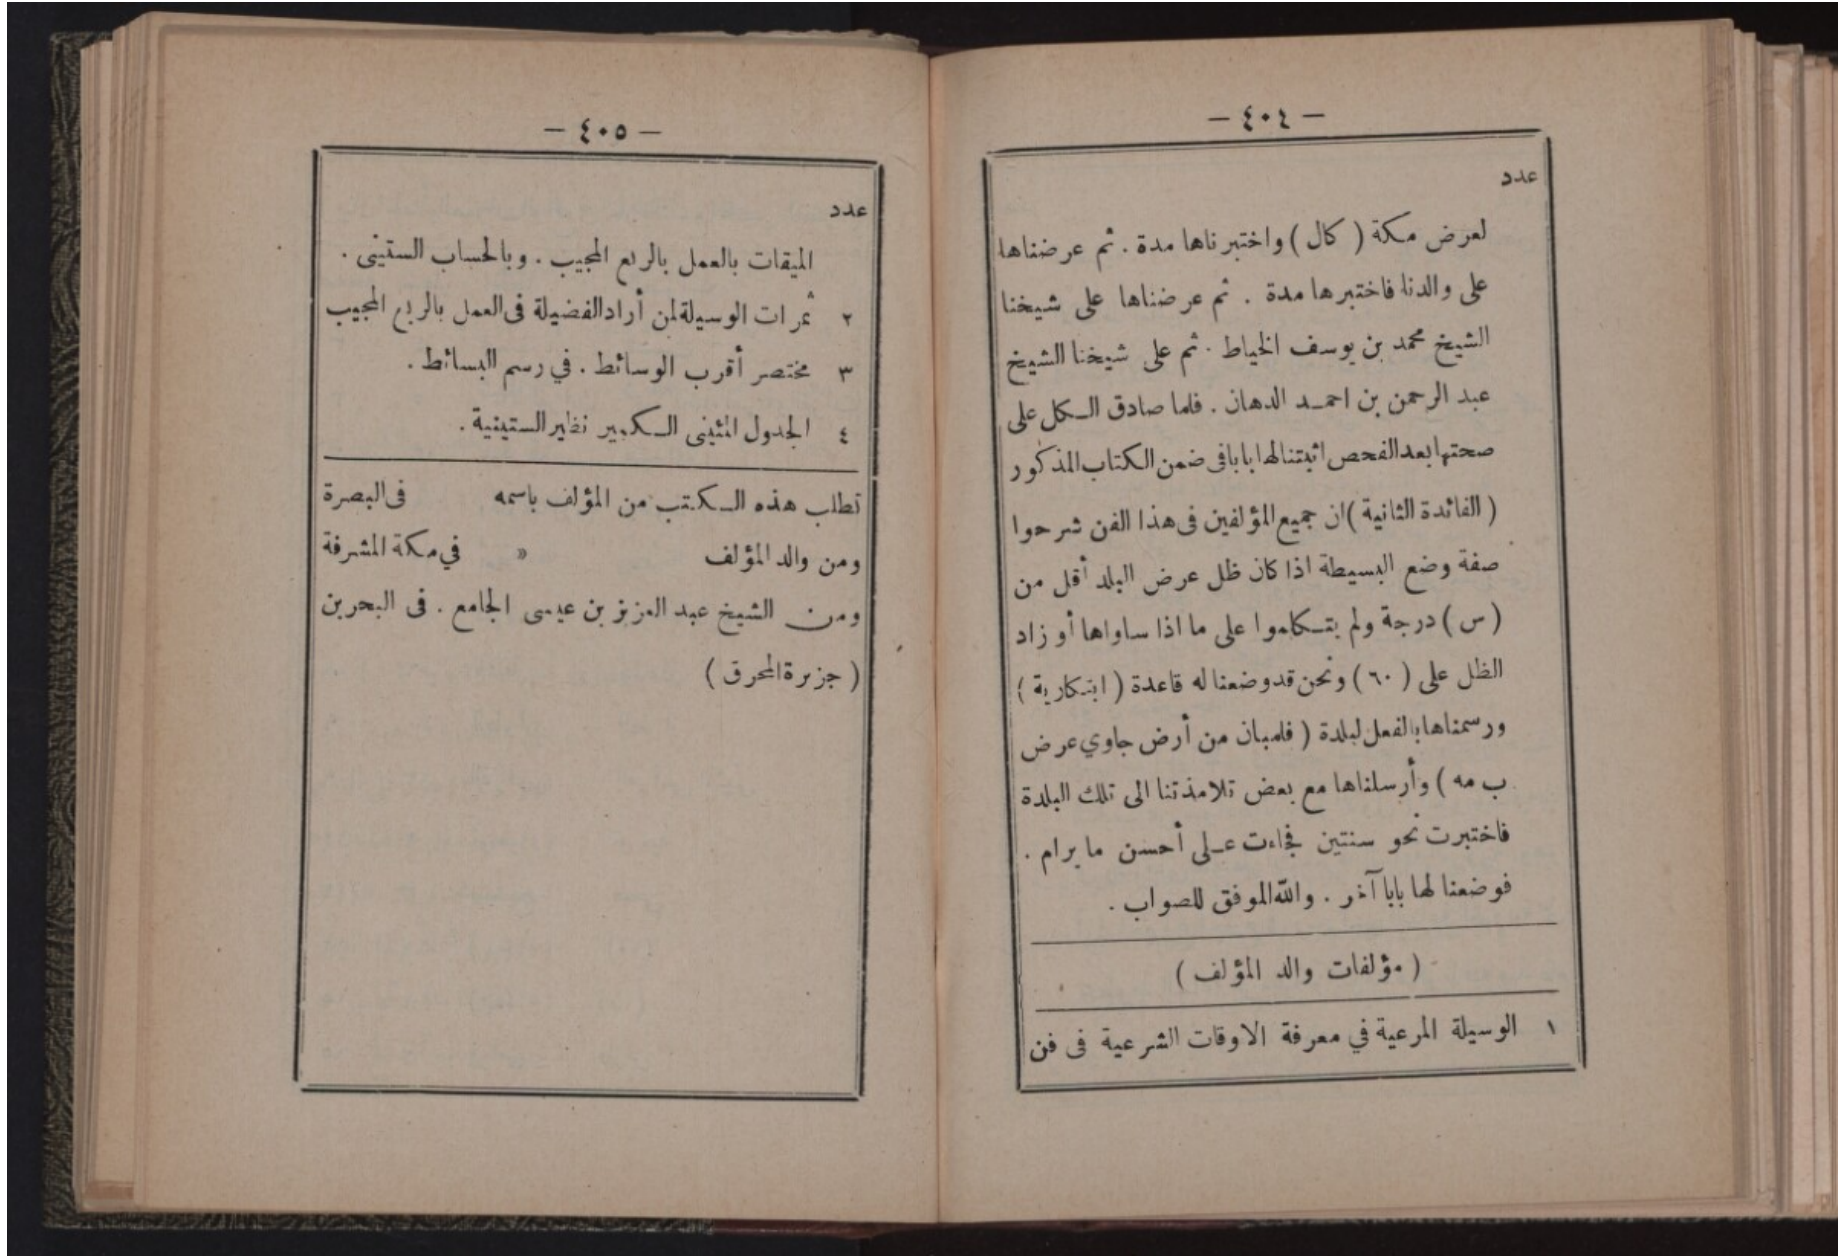 — ٤٠٤ —
عدد
لعرض مكة ( كال ) واختبرناها مدة . ثم عرضناها
على والدنا فاختبرها مدة . ثم عرضناها على شيخنا
الشيخ محمد بن يوسف الخياط . ثم على شيخنا الشيخ
عبد الرحمن بن احمد الدهان . فلما صادق الكل على
صحتها بعد الفحص اثبتنا لها بابا فى ضمن الكتاب المذكور
( الفائدة الثانية ) ان جميع المؤلفين فى هذا الفن شرحوا
صفة وضع البسيطة اذا كان ظل عرض البلد أقل من
( س ) درجة ولم يتكلموا على ما اذا ساواها أو زاد
الظل على ( ٦٠ ) ونحن قد وضعنا له قاعدة ( ابتكارية )
ورسمناها بالفعل لبلدة ( فلمبان من أرض جاوي عرض
ب مه ) وأرسلناها مع بعض تلامذتنا الى تلك البلدة
فاختبرت نحو سنتين فجاءت على أحسن ما يرام .
فوضعنا لها بابا آخر . والله الموفق للصواب .
( مؤلفات والد المؤلف )
١ الوسيلة المرعية في معرفة الاوقات الشرعية فى فن
— ٤٠٥ —
عدد
الميقات بالعمل بالربع المجيب . وبالحساب الستينى .
٢ ثمرات الوسيلة لمن أراد الفضيلة فى العمل بالربع المجيب
٣ مختصر أقرب الوسائط . في رسم البسائط .
٤ الجدول المئينى الكبير نظير الستينية .
تطلب هذه الكتب من المؤلف باسمه فى البصرة
ومن والد المؤلف » في مكة المشرفة
ومن الشيخ عبد العزيز بن عيسى الجامع . فى البحرين
( جزيرة المحرق )